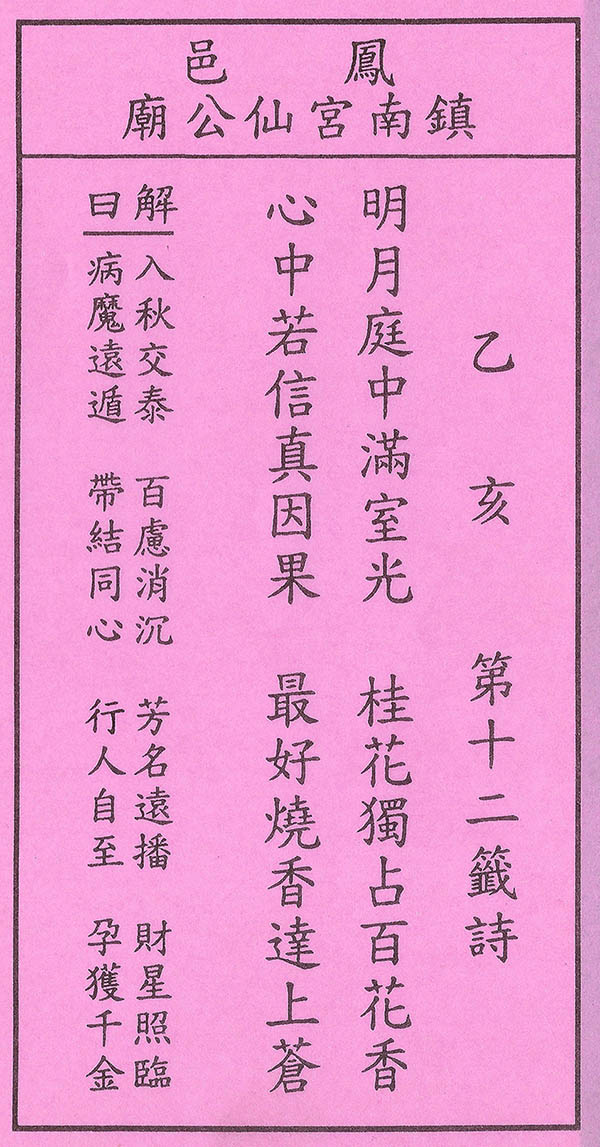 鳳邑
鎮南宮仙公廟
乙亥 第十二籤詩
明月庭中滿室光 桂花獨占百花香
心中若信真因果 最好燒香達上蒼
解曰
入秋交泰 百慮消沉 芳名遠播 財星照臨
病魔遠遁 帶結同心 行人自至 孕獲千金